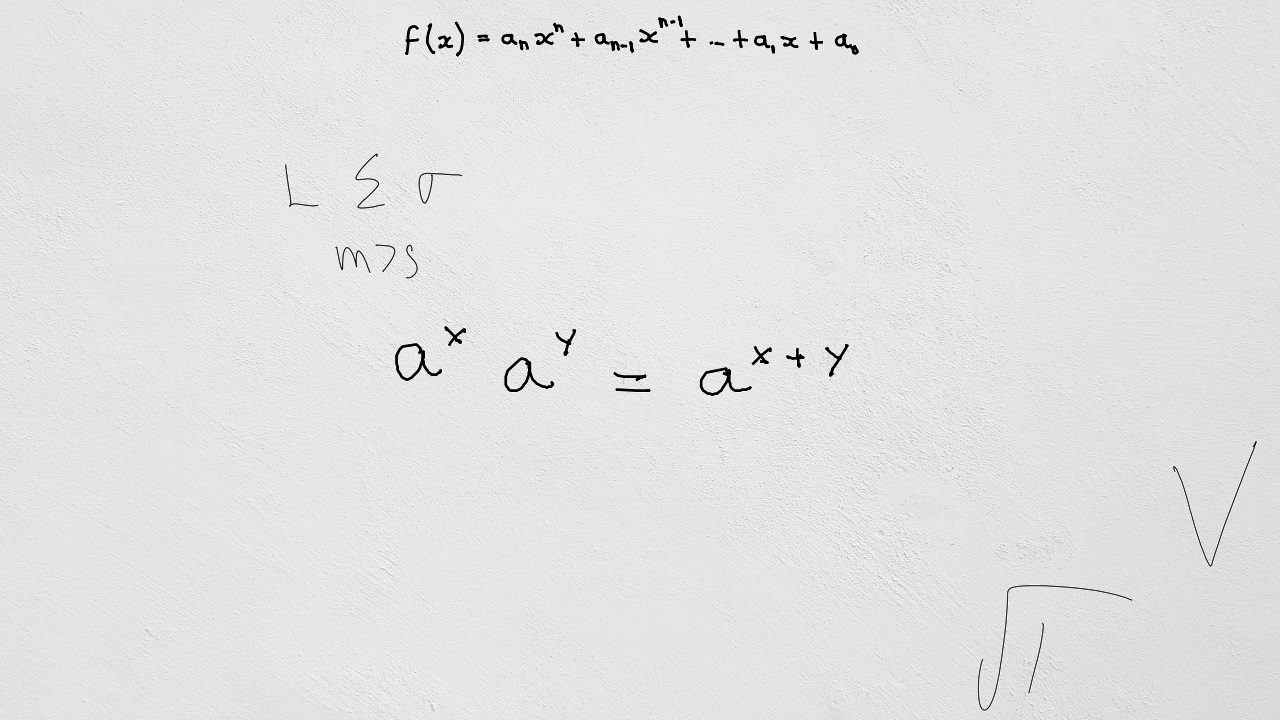 f(x) = aₙxⁿ + aₙ₋₁xⁿ⁻¹ + ... + a₁x + a₀
L Σ σ
m>s
aˣ aʸ = aˣ⁺ʸ
V
√1